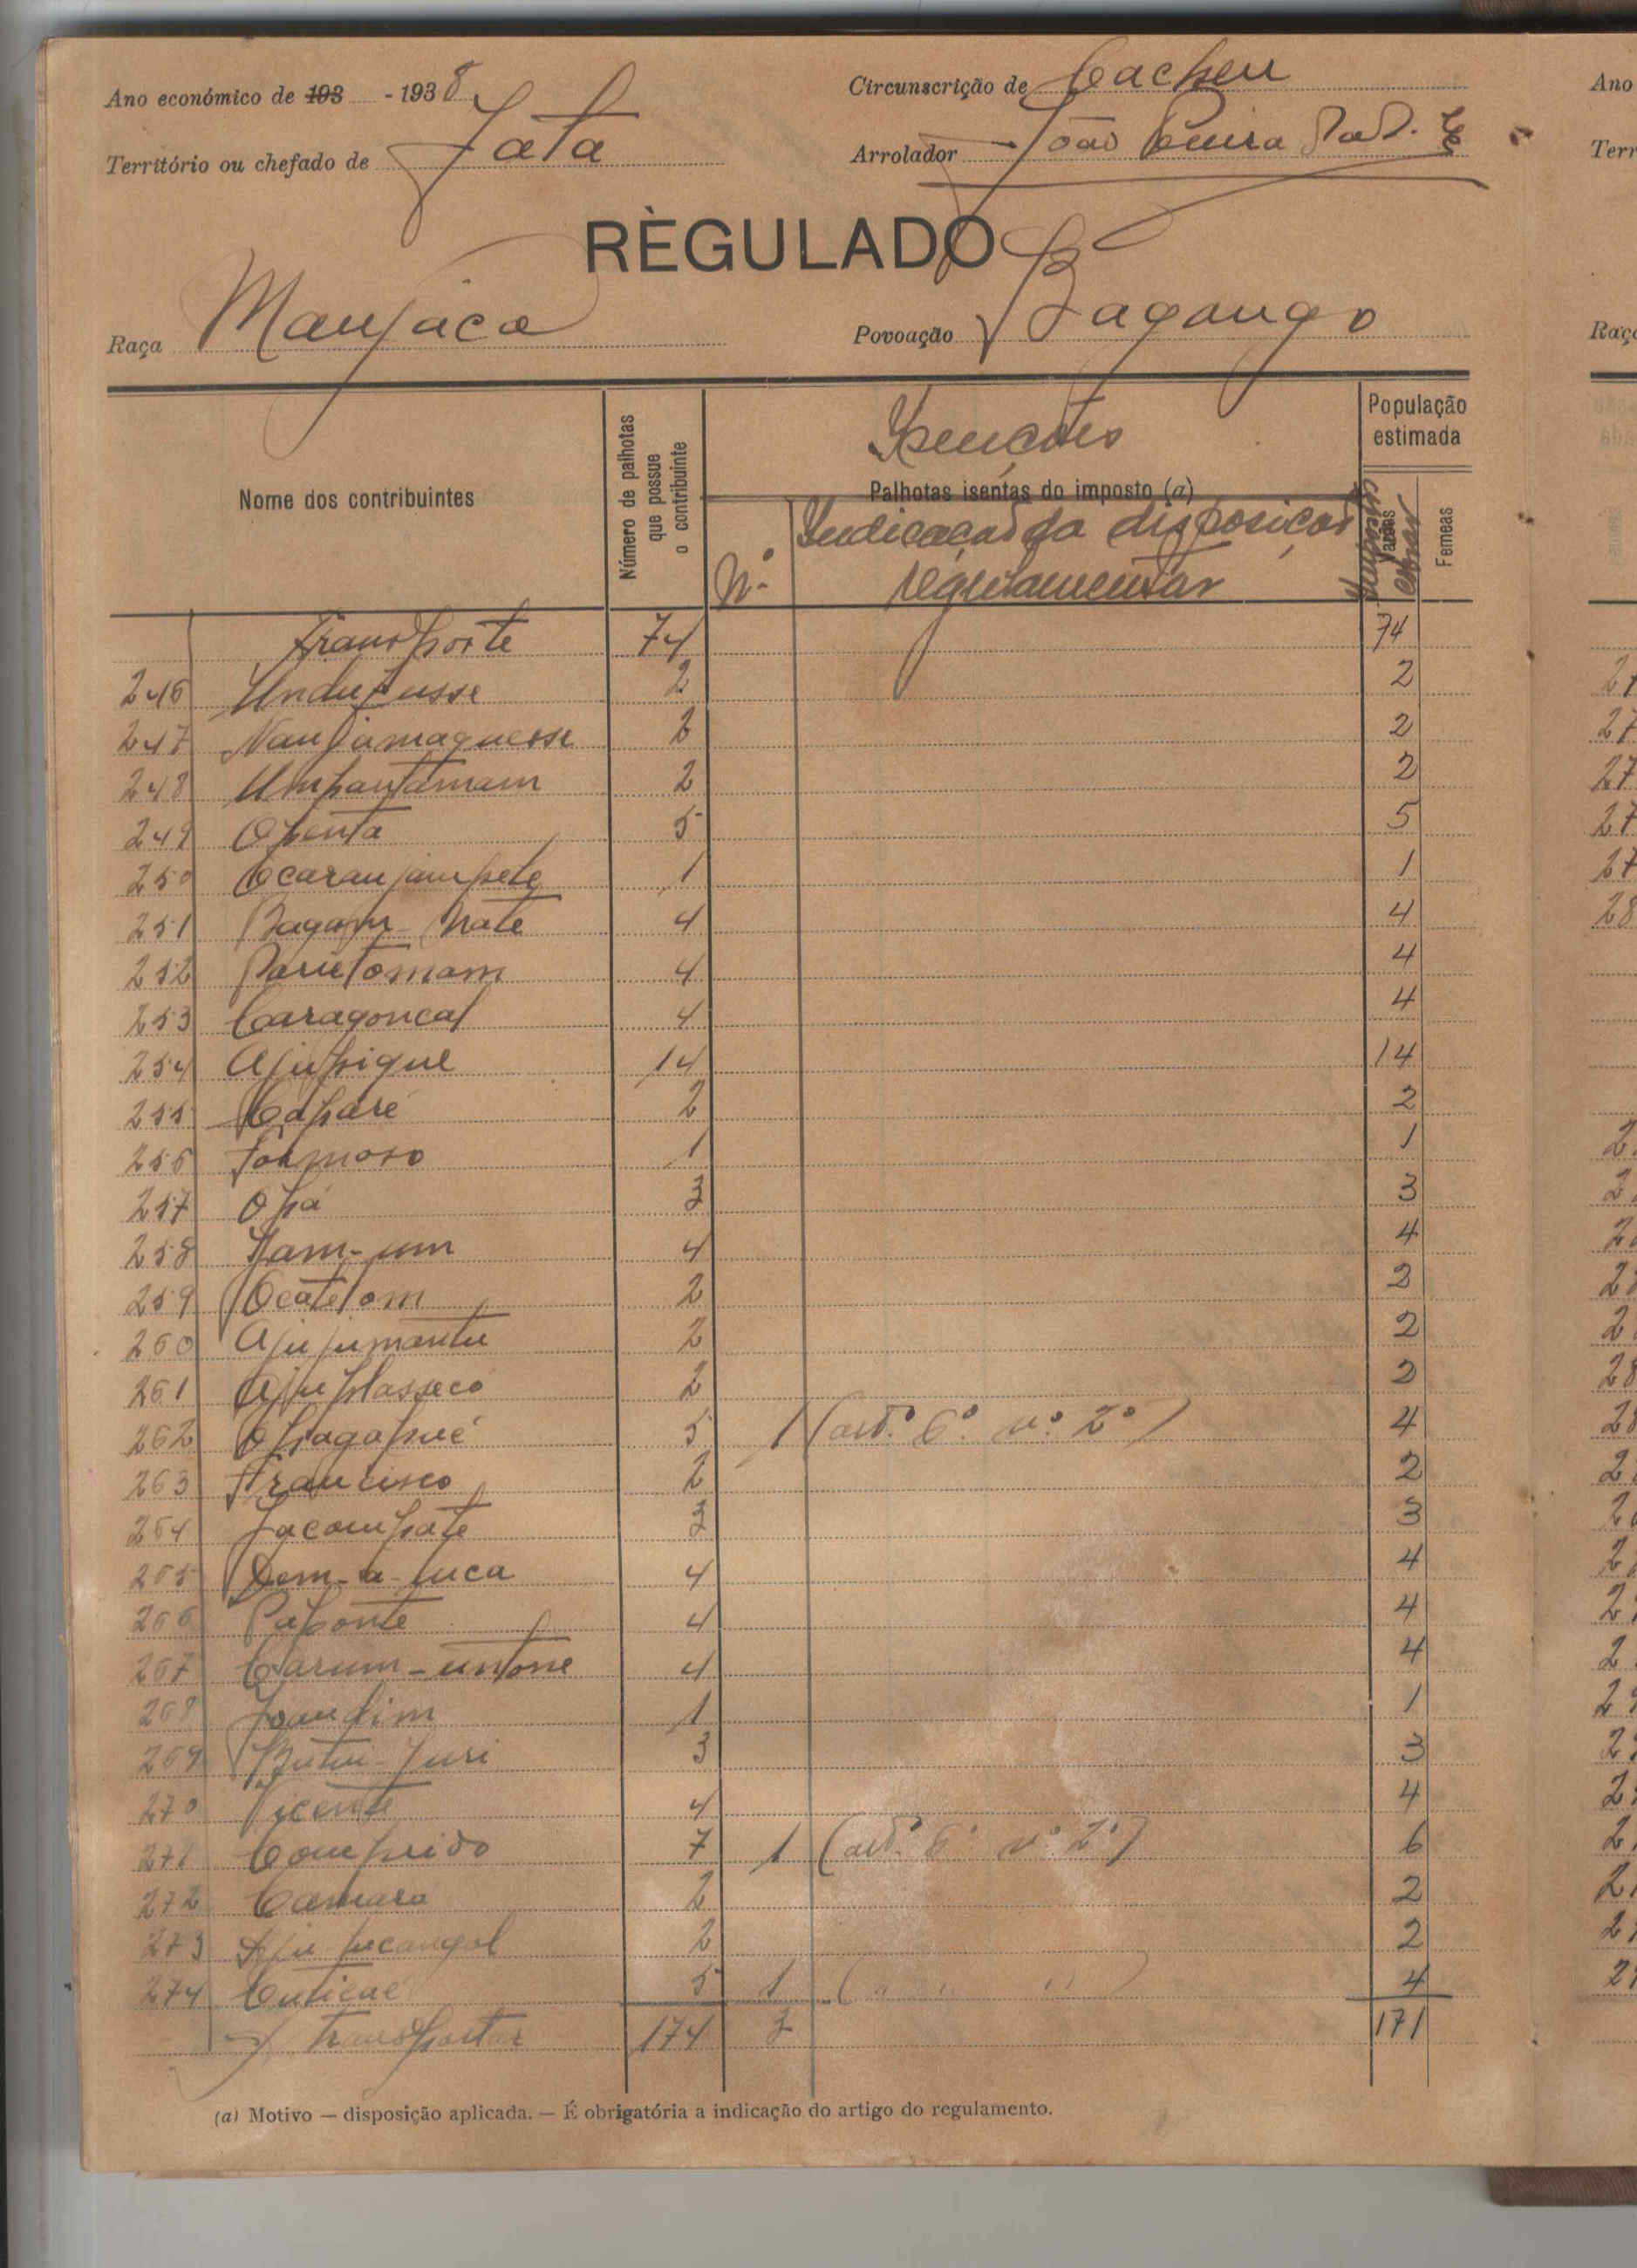 Ano económico de 193 - 1938
Circunscrição de Cacheu
Território ou chefado de Jata
Arrolador João
REGULADO
Raça Manjaca
Povoação Bagango
Nome dos contribuintes
Número de palhotas que possue o contribuinte
Isenções
Palhotas isentas do imposto (a)
N.º
Indicação da disposição
regulamentar
População estimada
Varões
Femeas
Transporte 74 74
246 2 2
247 Naujamaquesse 2 2
248 Umpantamam 2 2
249 Openta 5 5
250 Ocaranjampete 1 1
251 4 4
252 4 4
253 Caragoncal 4 4
254 Ajupique 14 14
255 Caparé 2 2
256 Formoso 1 1
257 Opá 3 3
258 4 4
259 Ocatetom 2 2
260 Ajujumantu 2 2
261 Ajuplasseco 2 2
262 5 1 (art.º 6.º n.º 2.º) 4
263 Francisco 2 2
264 Jacompate 3 3
265 Dom-a-luca 4 4
266 Paponte 4 4
267 4 4
268 1 1
269 3 3
270 Vicente 4 4
271 Comprido 7 1 (art.º 6.º n.º 2.º) 6
272 Camara 2 2
273 2 2
274 5 1 ( " " " ) 4
A transportar 174 3 171
(a) Motivo — disposição aplicada. — É obrigatória a indicação do artigo do regulamento.